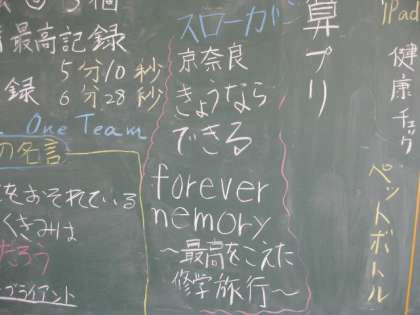 最高記録
5分10秒
録 6分28秒
One Team
の名言
をおそれている
くきみは
だろう
ブライアント
スローガン
京奈良
きょうなら
できる
forever
memory
〜最高をこえた
修学旅行〜
算プリ
iPad
健康チェク
ペットボトル